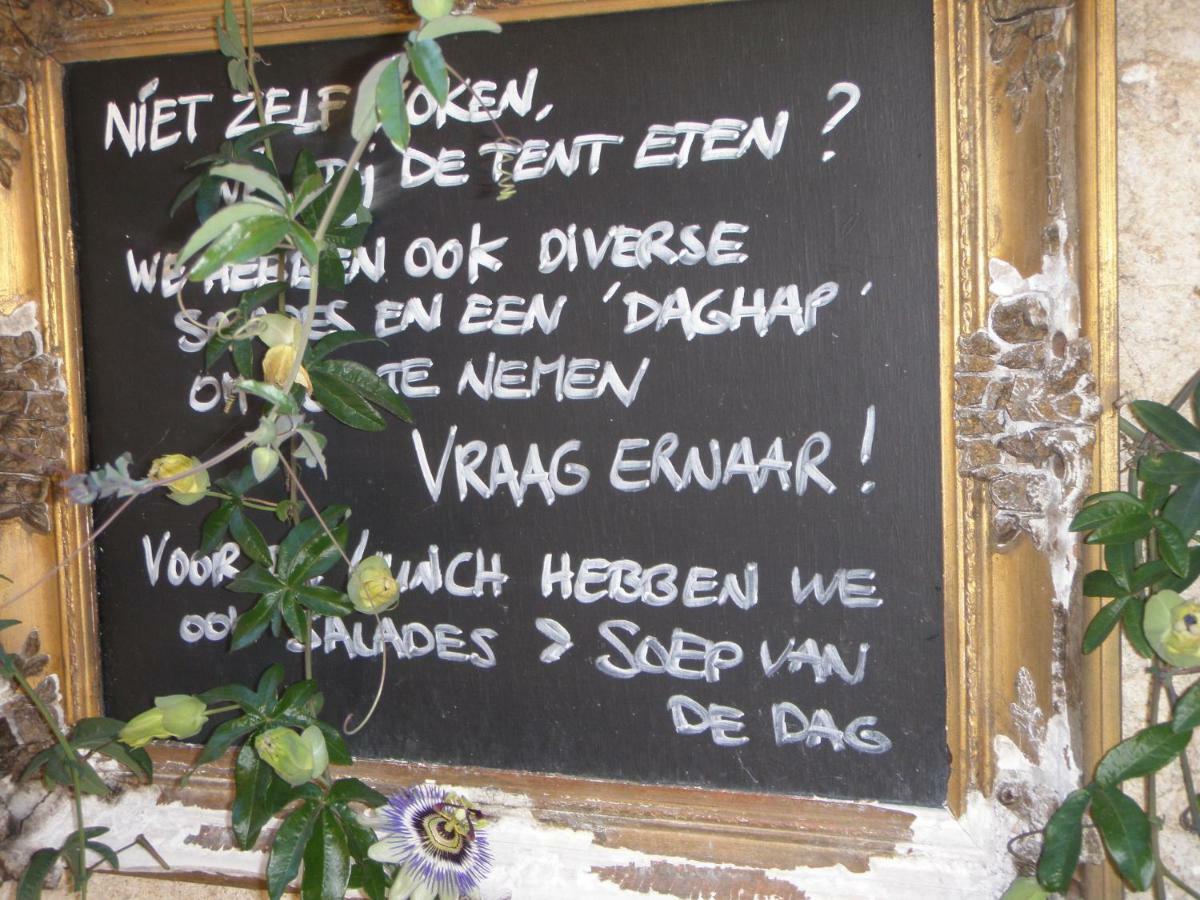 NIET ZELF KOKEN,
BIJ DE TENT ETEN ?
WE HEBBEN OOK DIVERSE
SALADES EN EEN 'DAGHAP'
OM TE NEMEN
VRAAG ERNAAR!
VOOR DE LUNCH HEBBEN WE
OOK SALADES > SOEP VAN
DE DAG